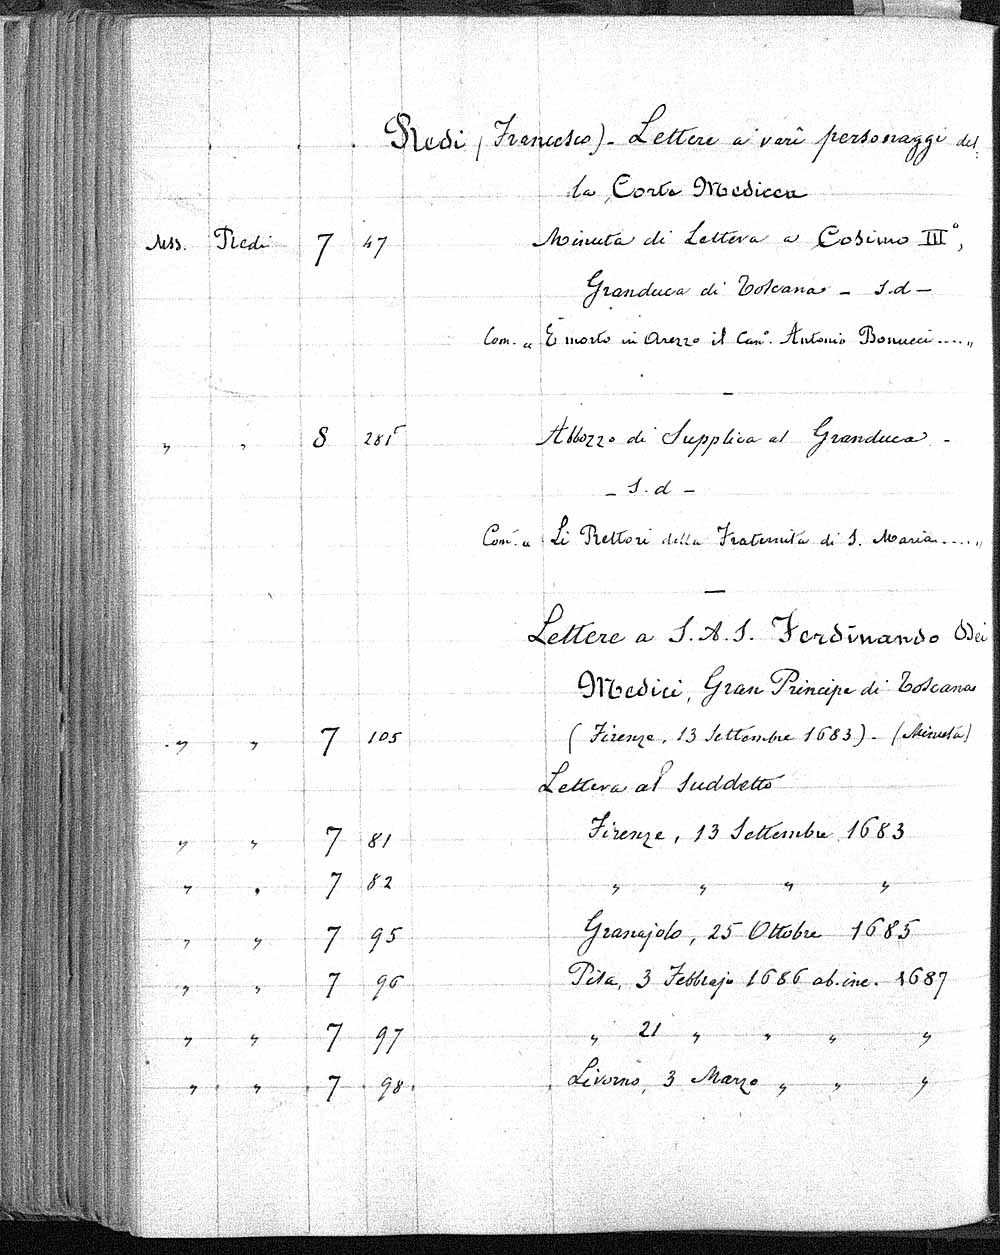 Redi (Francesco) - Lettere a varî personaggi del:
la Corte Medicea
Mss. Redi 7 47 Minuta di Lettera a Cosimo III°,
Granduca di Toscana - s.d -
Com. „ È morto in Arezzo il Can°. Antonio Bonucci....„
-
„ „ 8 Abbozzo di Supplica al Granduca -
- S.d -
Com. „ Li Rettori della Fraternita di S. Maria.....„
-
Lettere a S.A.S. Ferdinando Dei
Medici, Gran Principe di Toscana
„ „ 7 105 (Firenze, 13 Settembre 1683) - (Minuta)
Lettera al Suddetto
„ „ 7 81 Firenze, 13 Settembre 1683
„ „ 7 82 „ „ „ „
„ „ 7 95 Granajolo, 25 Ottobre 1685
„ „ 7 96 Pisa, 3 Febbrajo 1686 ab. inc. 1687
„ „ 7 97 „ 21 „ „ „ „
„ „ 7 98 Livorno, 3 Marzo „ „ „